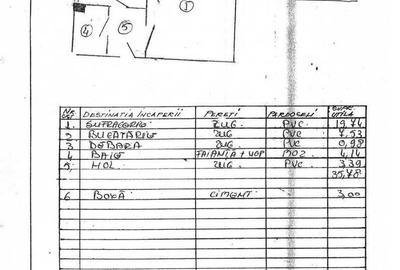 4 5 1
NR. CRT. DESTINATIA ÎNCAPERII PEREȚI PARDOSELI SUPR. UTILĂ
1. SUFRAGERIE ZUG. PVC 19,74
2 BUCATARIE ZUG PVC 7,53
3 DEBARA ZUG. PVC 0,98
4 BAIE FAIANȚĂ + VOP MOZ 4,14
5, HOL ZUG. PVC 3,39
35,78
6 BOXĂ CIMENT 3,00